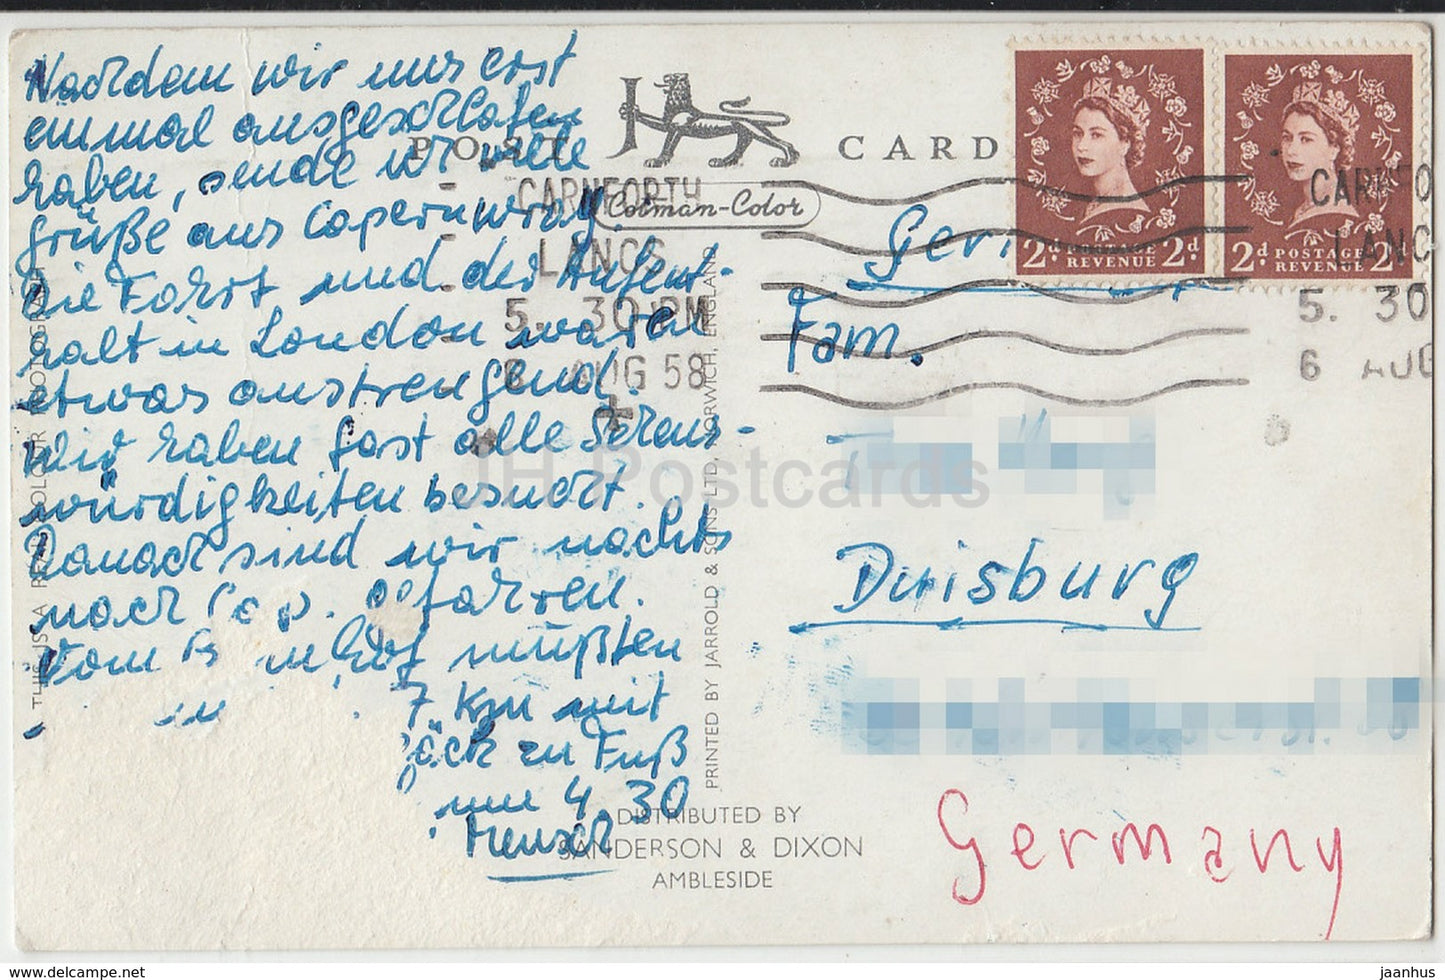 Nachdem wir uns erst
einmal ausgeschlafen
haben, sende ich viele
Grüße aus Capernwray.
Die Fahrt und der Aufent-
halt in London waren
etwas anstrengend.
Wir haben fast alle Sehens-
würdigkeiten besucht.
Danach sind wir nachts
nach Cap. gefahren.
Vom B nhof mußten
7 km mit
päck zu Fuß
um 4.30
Mensch
POST CARD
Colman-Color
CARNFORTH
LANCS
5. 30 PM
6 AUG 58
2d. POSTAGE REVENUE 2d.
2d. POSTAGE REVENUE 2d.
CARNFO
LANC
5. 30
6 AUG
Fam.
Duisburg
Germany
THIS IS A REAL COLOUR PHOTOGRAPH
PRINTED BY JARROLD & SONS LTD, NORWICH, ENGLAND
DISTRIBUTED BY
SANDERSON & DIXON
AMBLESIDE
JH Postcards
www.delcampe.net
jaanhus